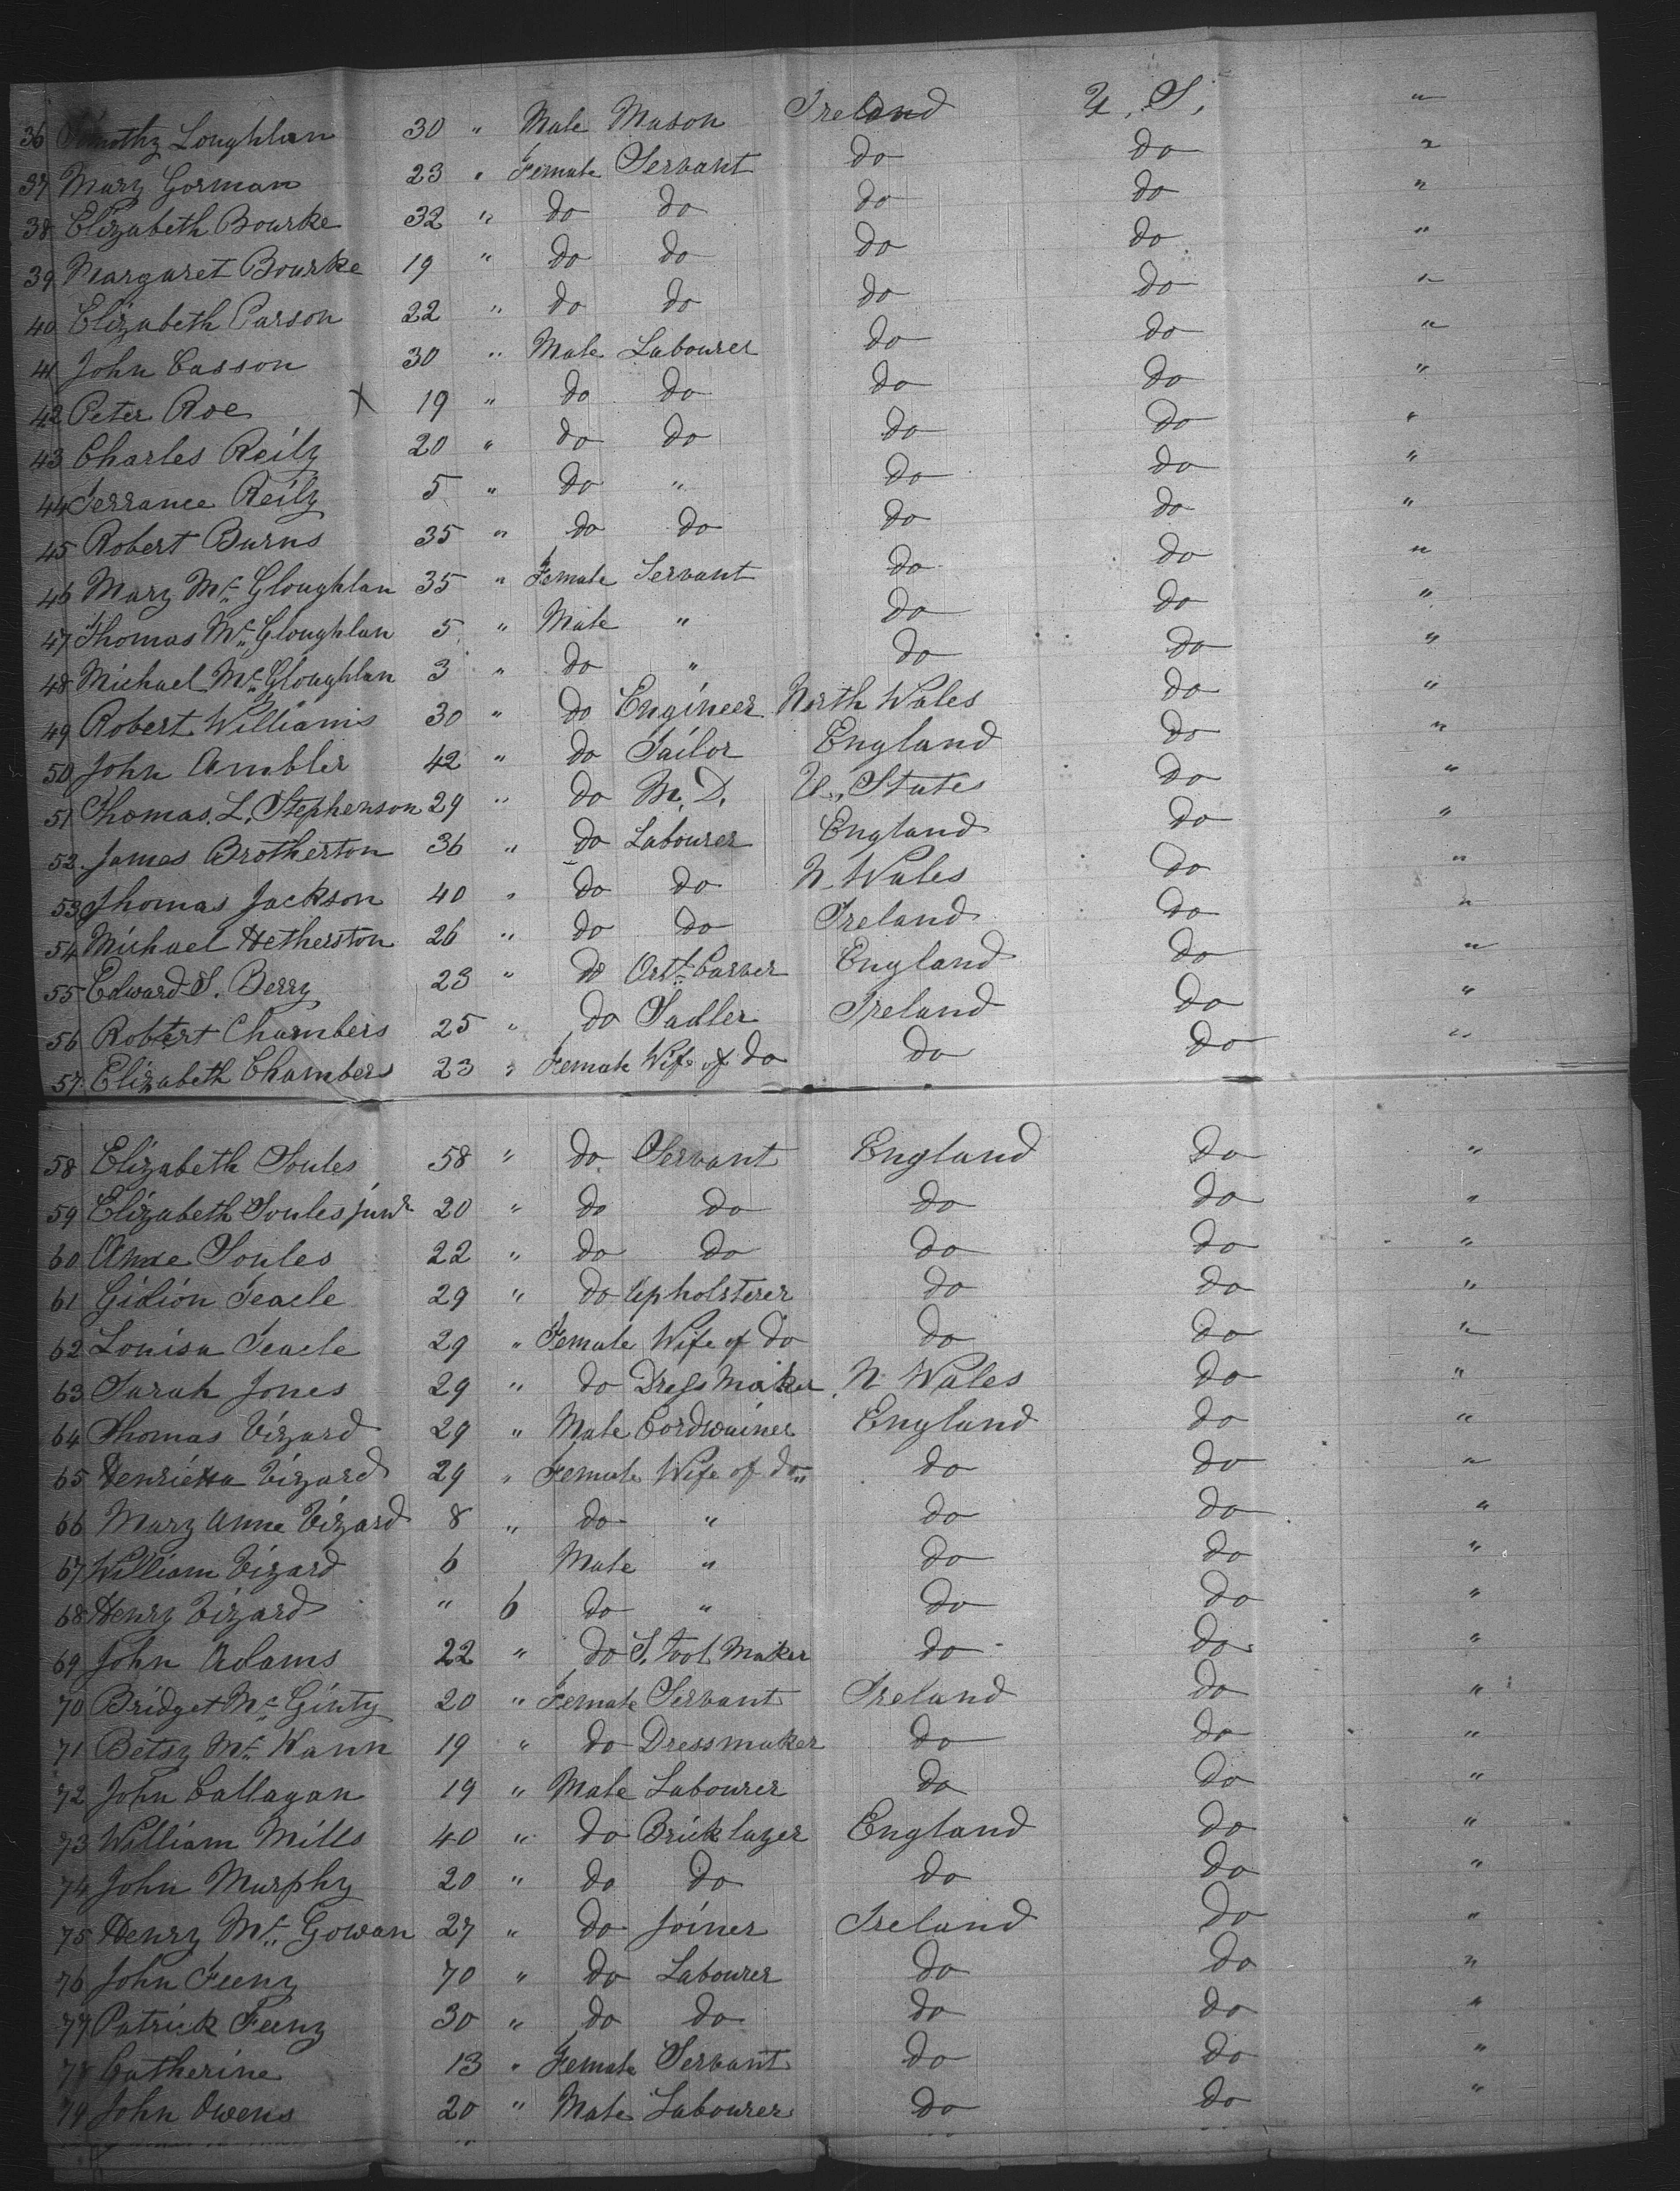 36 Timothy Loughlan 30 " Male Mason Ireland U. S. "
37 Mary Gorman 23 " Female Servant do do "
38 Elizabeth Bourke 32 " do do do do "
39 Margaret Bourke 19 " do do do do "
40 Elizabeth Carson 22 " do do do do "
41 John Casson 30 " Male Labourer do do "
42 Peter Roe X 19 " do do do do "
43 Charles Reily 20 " do do do do "
44 Terrance Reily 5 " do " do do "
45 Robert Burns 35 " do do do do "
46 Mary Mc Gloughlan 35 " Female Servant do do "
47 Thomas Mc Gloughlan 5 " Male " do do "
48 Michael Mc Gloughlan 3 " do " do do "
49 Robert Williams 30 " do Engineer North Wales do "
50 John Ambler 42 " do Tailor England do "
51 Thomas. L. Stephenson 29 " do M. D. U. States do "
52 James Brotherton 36 " do Labourer England do "
53 Thomas Jackson 40 " do do N. Wales do "
54 Michael Hetherston 26 " do do Ireland do "
55 Edward S. Berry 23 " do Ort. Carver England do "
56 Robert Chambers 25 " do Sadler Ireland do "
57 Elizabeth Chambers 23 " Female Wife of do do do "
58 Elizabeth Soules 58 " do Servant England do "
59 Elizabeth Soules junr 20 " do do do do "
60 Anne Soules 22 " do do do do "
61 Gidion Teacle 29 " do Upholsterer do do "
62 Louisa Teacle 29 " Female Wife of do do do "
63 Sarah Jones 29 " do Dress Maker N Wales do "
64 Thomas Vizard 29 " Male Cordwainer England do "
65 Henrietta Vizard 29 " Female Wife of do " do do "
66 Mary Anne Vizard 8 " do " do do "
67 William Vizard 6 Male " do do "
68 Henry Vizard " 6 do " do do "
69 John Adams 22 " do S. tool Maker do do "
70 Bridget Mc Ginty 20 " Female Servant Ireland do "
71 Betsy Mc Wann 19 " do Dressmaker do do "
72 John Callagan 19 " Male Labourer do do "
73 William Mills 40 " do Bricklayer England do "
74 John Murphy 20 " do do do do "
75 Henry Mc Gowan 27 " do Joiner Ireland do "
76 John Feeny 70 " do Labourer do do "
77 Patrick Feeny 30 " do do do do "
78 Catherine 13 " Female Servant do do "
79 John Owens 20 " Male Labourer do do "